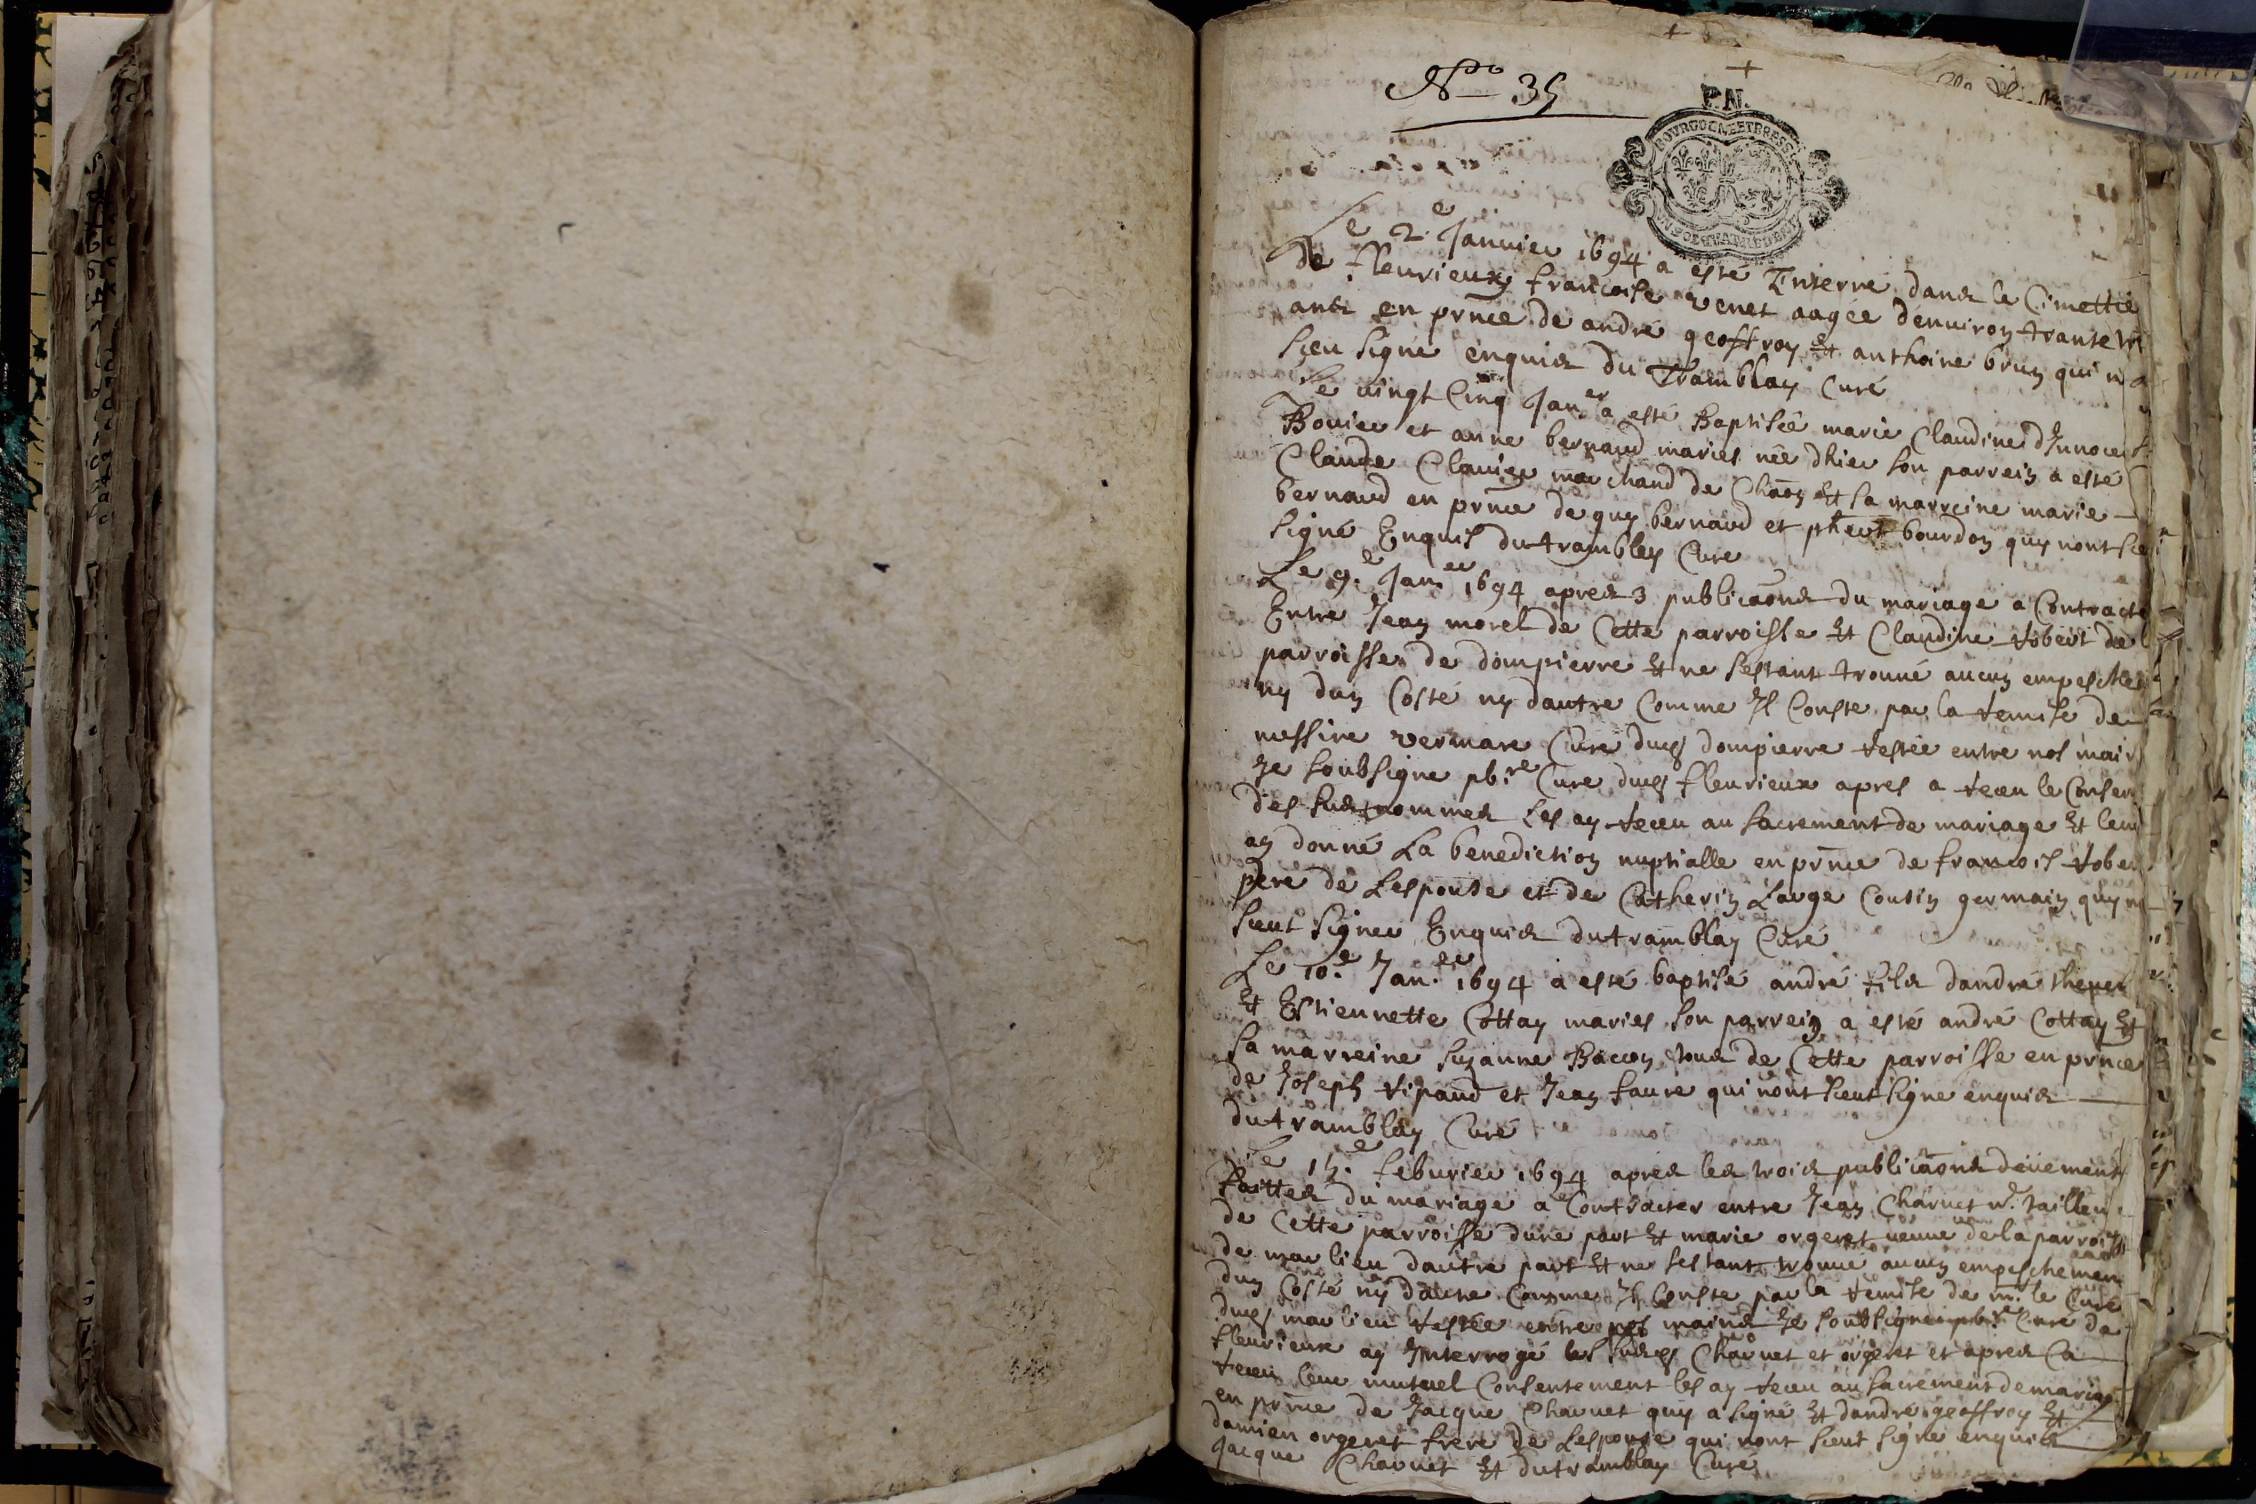 No 35
P.N.
BOVRGOGNE ET BRESSE
Le 2e Janvier 1694 a esté Enterré dans le Cimettie
de fleurieux francoise venet aagée denuiron trante
ans en prnce de andré geoffroy Et anthoine brun qui n
sceu signé enquis Du Tramblay Curé
Le uingt Cinq Janer a esté Baptisée marie Claudine dJnnocent
Bouier et anne bernaud mariés née dhier son parrein a esté
Claude Clauier marchand de Chaon Et sa marreine marie
bernaud en prnce de guy bernaud et phert bourdon quy nont sce
signé Enquis dutramblay Cure
Le 9e Janer 1694 apres 3 publicaons du mariage a Contracte
Entre Jean morel de Cette parroisse Et Claudine robert de
parroisse de dompierre Et ne sestant trouué aucun empesche
ny dun Costé ny dautre Comme Jl Conste par la remise de
messire vermare Cure dud dompierre restée entre nos main
Je soubsigne pbre Cure dud fleurieux apres a receu le Consen
des susnommes Les ay receu au sacrement de mariage Et leur
ay donné La benediction nuptialle en prnce de francois rober
pere de Lespouse et de Catherin Large Cousin germain quy n
sceut signer Enquis dutramblay Curé
Le 10e Janer 1694 a esté baptisé andré fils dandré theuer
Et Estiennette Cottay mariés son parrein a esté andré Cottay Et
sa marreine suzanne Baccon tous de Cette parroisse en prnce
de Joseph ripaud et Jean faure qui nont sceut signe enquis
dutramblay Curé
Le 15e feburier 1694 apres les trois publicaons deüement
faittes du mariage a Contracter entre Jean Charuet me tailleu
de Cette parroisse dune part Et marie orgeret ueuue de la parroisse
de marlieu dautre part Et ne sestant trouue aucun empeschement
dun Costé ny dautre Comme Jl Conste par la remise de mr le Curé
dud marlieu restée entre nos mains Je soubsigne pbre Cure de
fleurieux ay Jnterrogé les susd Charuet et orgeret et apres Ca
receu leur mutuel Consentement les ay receu au sacrement de mariage
en prnce de Jacque Charuet quy a signé Et dandré geoffroy Et
damien orgeret frere de Lespouse qui nont sceut signé enquis
Jacque Charuet Et dutramblay Cure